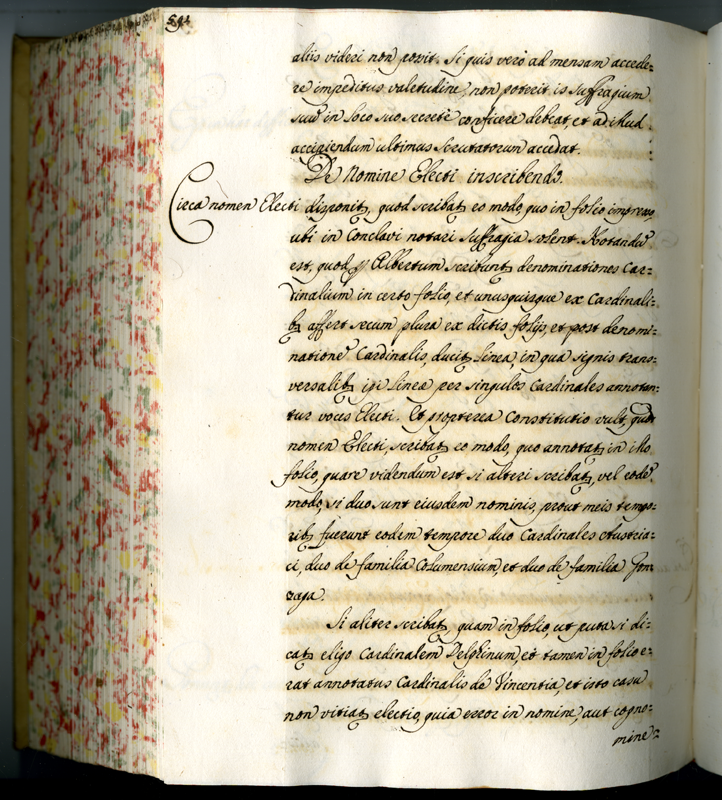 aliis videri non possit. Si quis vero ad mensam accede=
re impeditus valetudine, non poterit, is suffragium
suū in loco suo secretè conficere debeat, et ad illud
accipiendum ultimus scrutatorum accedat.
De Nomine Electi inscribendo.
Circa nomen Electi disponit, quod scribat eo modo, quo in folio impresso
ubi in Conclavi notari suffragia solent. Notandū
est, quod Albertum scribunt denominationes Car=
dinalium in certo folio, et unusquisque ex Cardinali=
bs affert secum plura ex dictis folijs, et post denomi=
natione Cardinalis, ducit linea, in qua signis trans=
versalibs ipi linea per singulos Cardinales annotan=
tur voces Electi. Et propterea Constitutio vult, quod
nomen Electi, scribat eo modo, quo annotat in illo
folio, quare videndum est si alteri scribat, vel eodē
modo, si duo sunt eiusdem nominis, prout meis tempo=
ribs fuerunt eodem tempore duo Cardinales Austria=
ci, duo de familia Columensium, et duo de familia Gon=
zaga.
Si aliter scribat, quam in folio, ut puta si di=
cat eligo Cardinalem Delphinum, et tamen in folio e=
rat annotatus Cardinalis de Vincentia, et isto casu
non vitiat electio, quia error in nomine, aut cogno=
mine